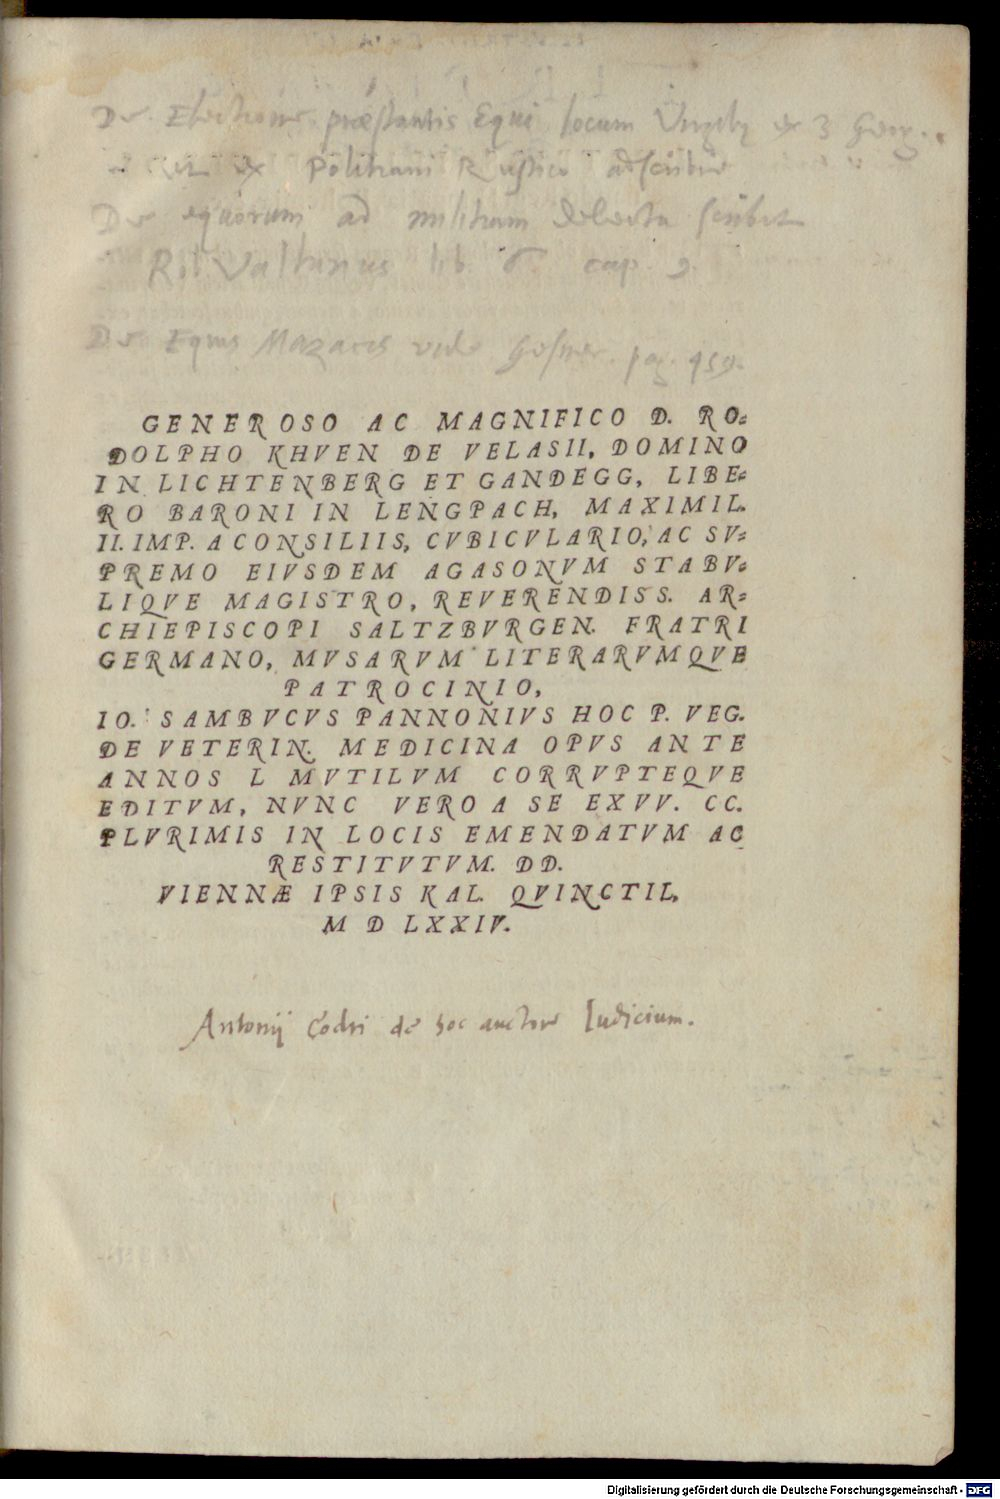 De Electione præstantis Equi locum Virgilij ex 3 Georg.
et ex Politiani Rustico adscribe
De equorum ad militiam delectu scribit
Rob. Valturius lib. 6. cap. 9.
De Equis Mazacis vide Gesner. pag. 459.
GENEROSO AC MAGNIFICO D. RO=
DOLPHO KHVEN DE VELASII, DOMINO
IN LICHTENBERG ET GANDEGG, LIBE=
RO BARONI IN LENGPACH, MAXIMIL.
II. IMP. A CONSILIIS, CVBICVLARIO, AC SV=
PREMO EIVSDEM AGASONVM STABV=
LIQVE MAGISTRO, REVERENDISS. AR=
CHIEPISCOPI SALTZBVRGEN. FRATRI
GERMANO, MVSARVM LITERARVMQVE
PATROCINIO,
IO. SAMBVCVS PANNONIVS HOC P. VEG.
DE VETERIN. MEDICINA OPVS ANTE
ANNOS L MVTILVM CORRVPTEQVE
EDITVM, NVNC VERO A SE EX VV. CC.
PLVRIMIS IN LOCIS EMENDATVM AC
RESTITVTVM. DD.
VIENNÆ IPSIS KAL. QVINCTIL.
M D LXXIV.
Antonij Codri de hoc auctore Iudicium.
Digitalisierung gefördert durch die Deutsche Forschungsgemeinschaft - DFG